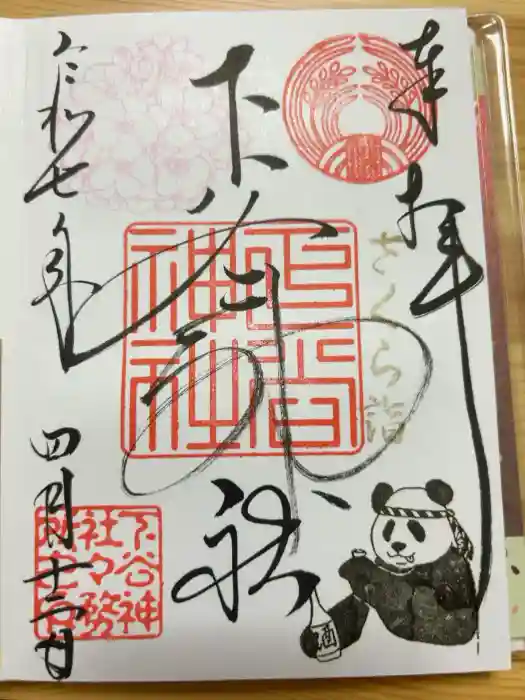 奉拝
さくら詣
下谷神社
下谷
神社
令和七年
四月十二日
下谷神
社々務
所之印
酒